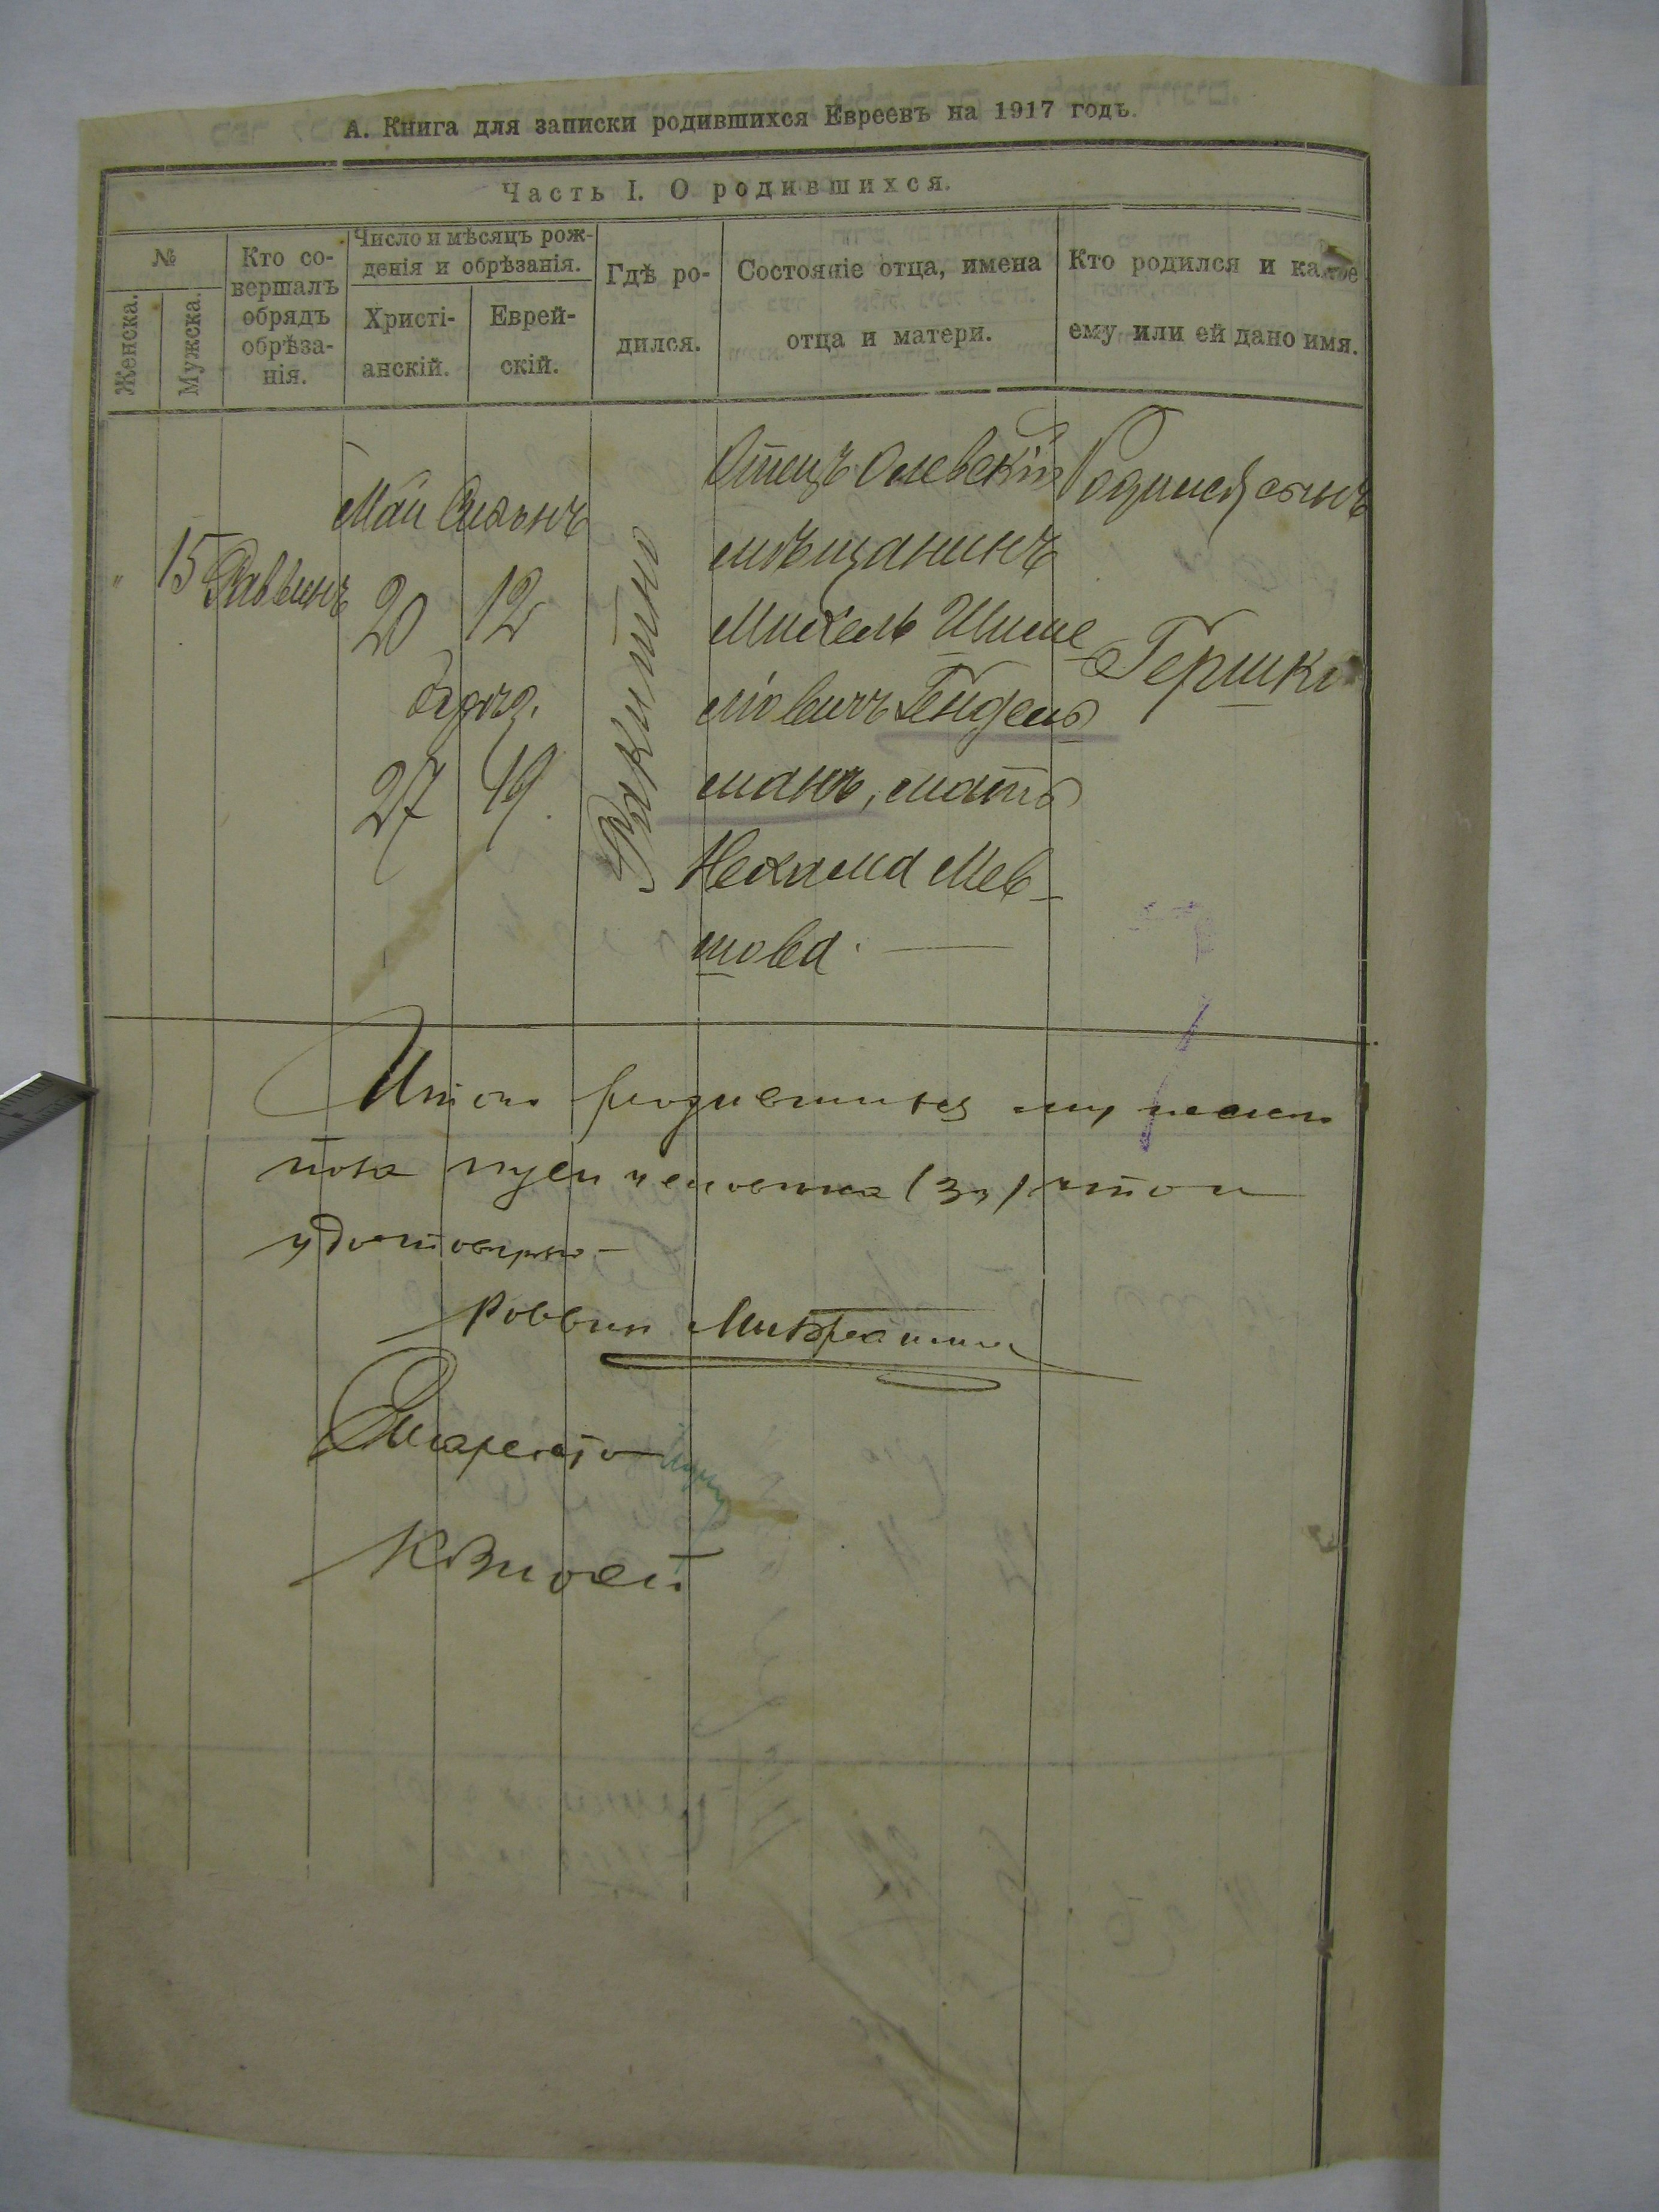 А. Книга для записки родившихся Евреевъ на 1917 годъ.
Часть I. О родившихся.
№
Женска.
Мужска.
Кто со-
вершалъ
обрядъ
обрѣза-
нія.
Число и мѣсяцъ рож-
денія и обрѣзанія.
Христі-
анскій.
Еврей-
скій.
Гдѣ ро-
дился.
Состояніе отца, имена
отца и матери.
Кто родился и какое
ему или ей дано имя.
"
15
Раввинъ
Май Сивонъ
20 12
27 19.
Ракитно
Отецъ Олевскій
мѣщанинъ
Михель Шиме
ліовичъ Гендель
манъ, мать
Нехама Мев-
шова.
Родился сынъ
Гершко
Итого родившихся мужского
пола человека (3) что и
удостоверяю
Раввин